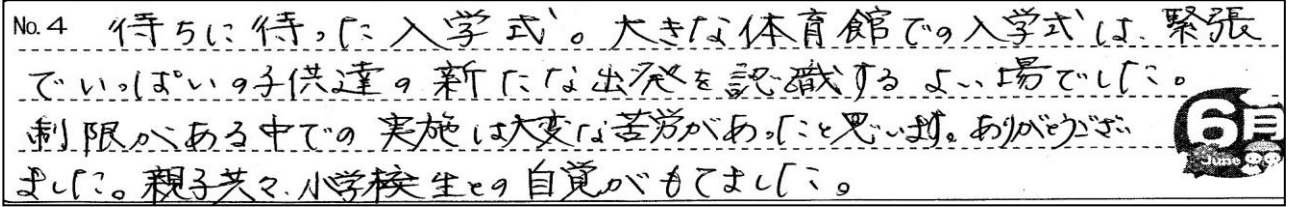 No. 4 待ちに待った入学式。大きな体育館での入学式は、緊張
でいっぱいの子供達の新たな出発を認識するよい場でした。
制限がある中での実施は大変な苦労があったと思います。ありがとうござい
ました。親子共々、小学校生との自覚がもてました。
6月
June